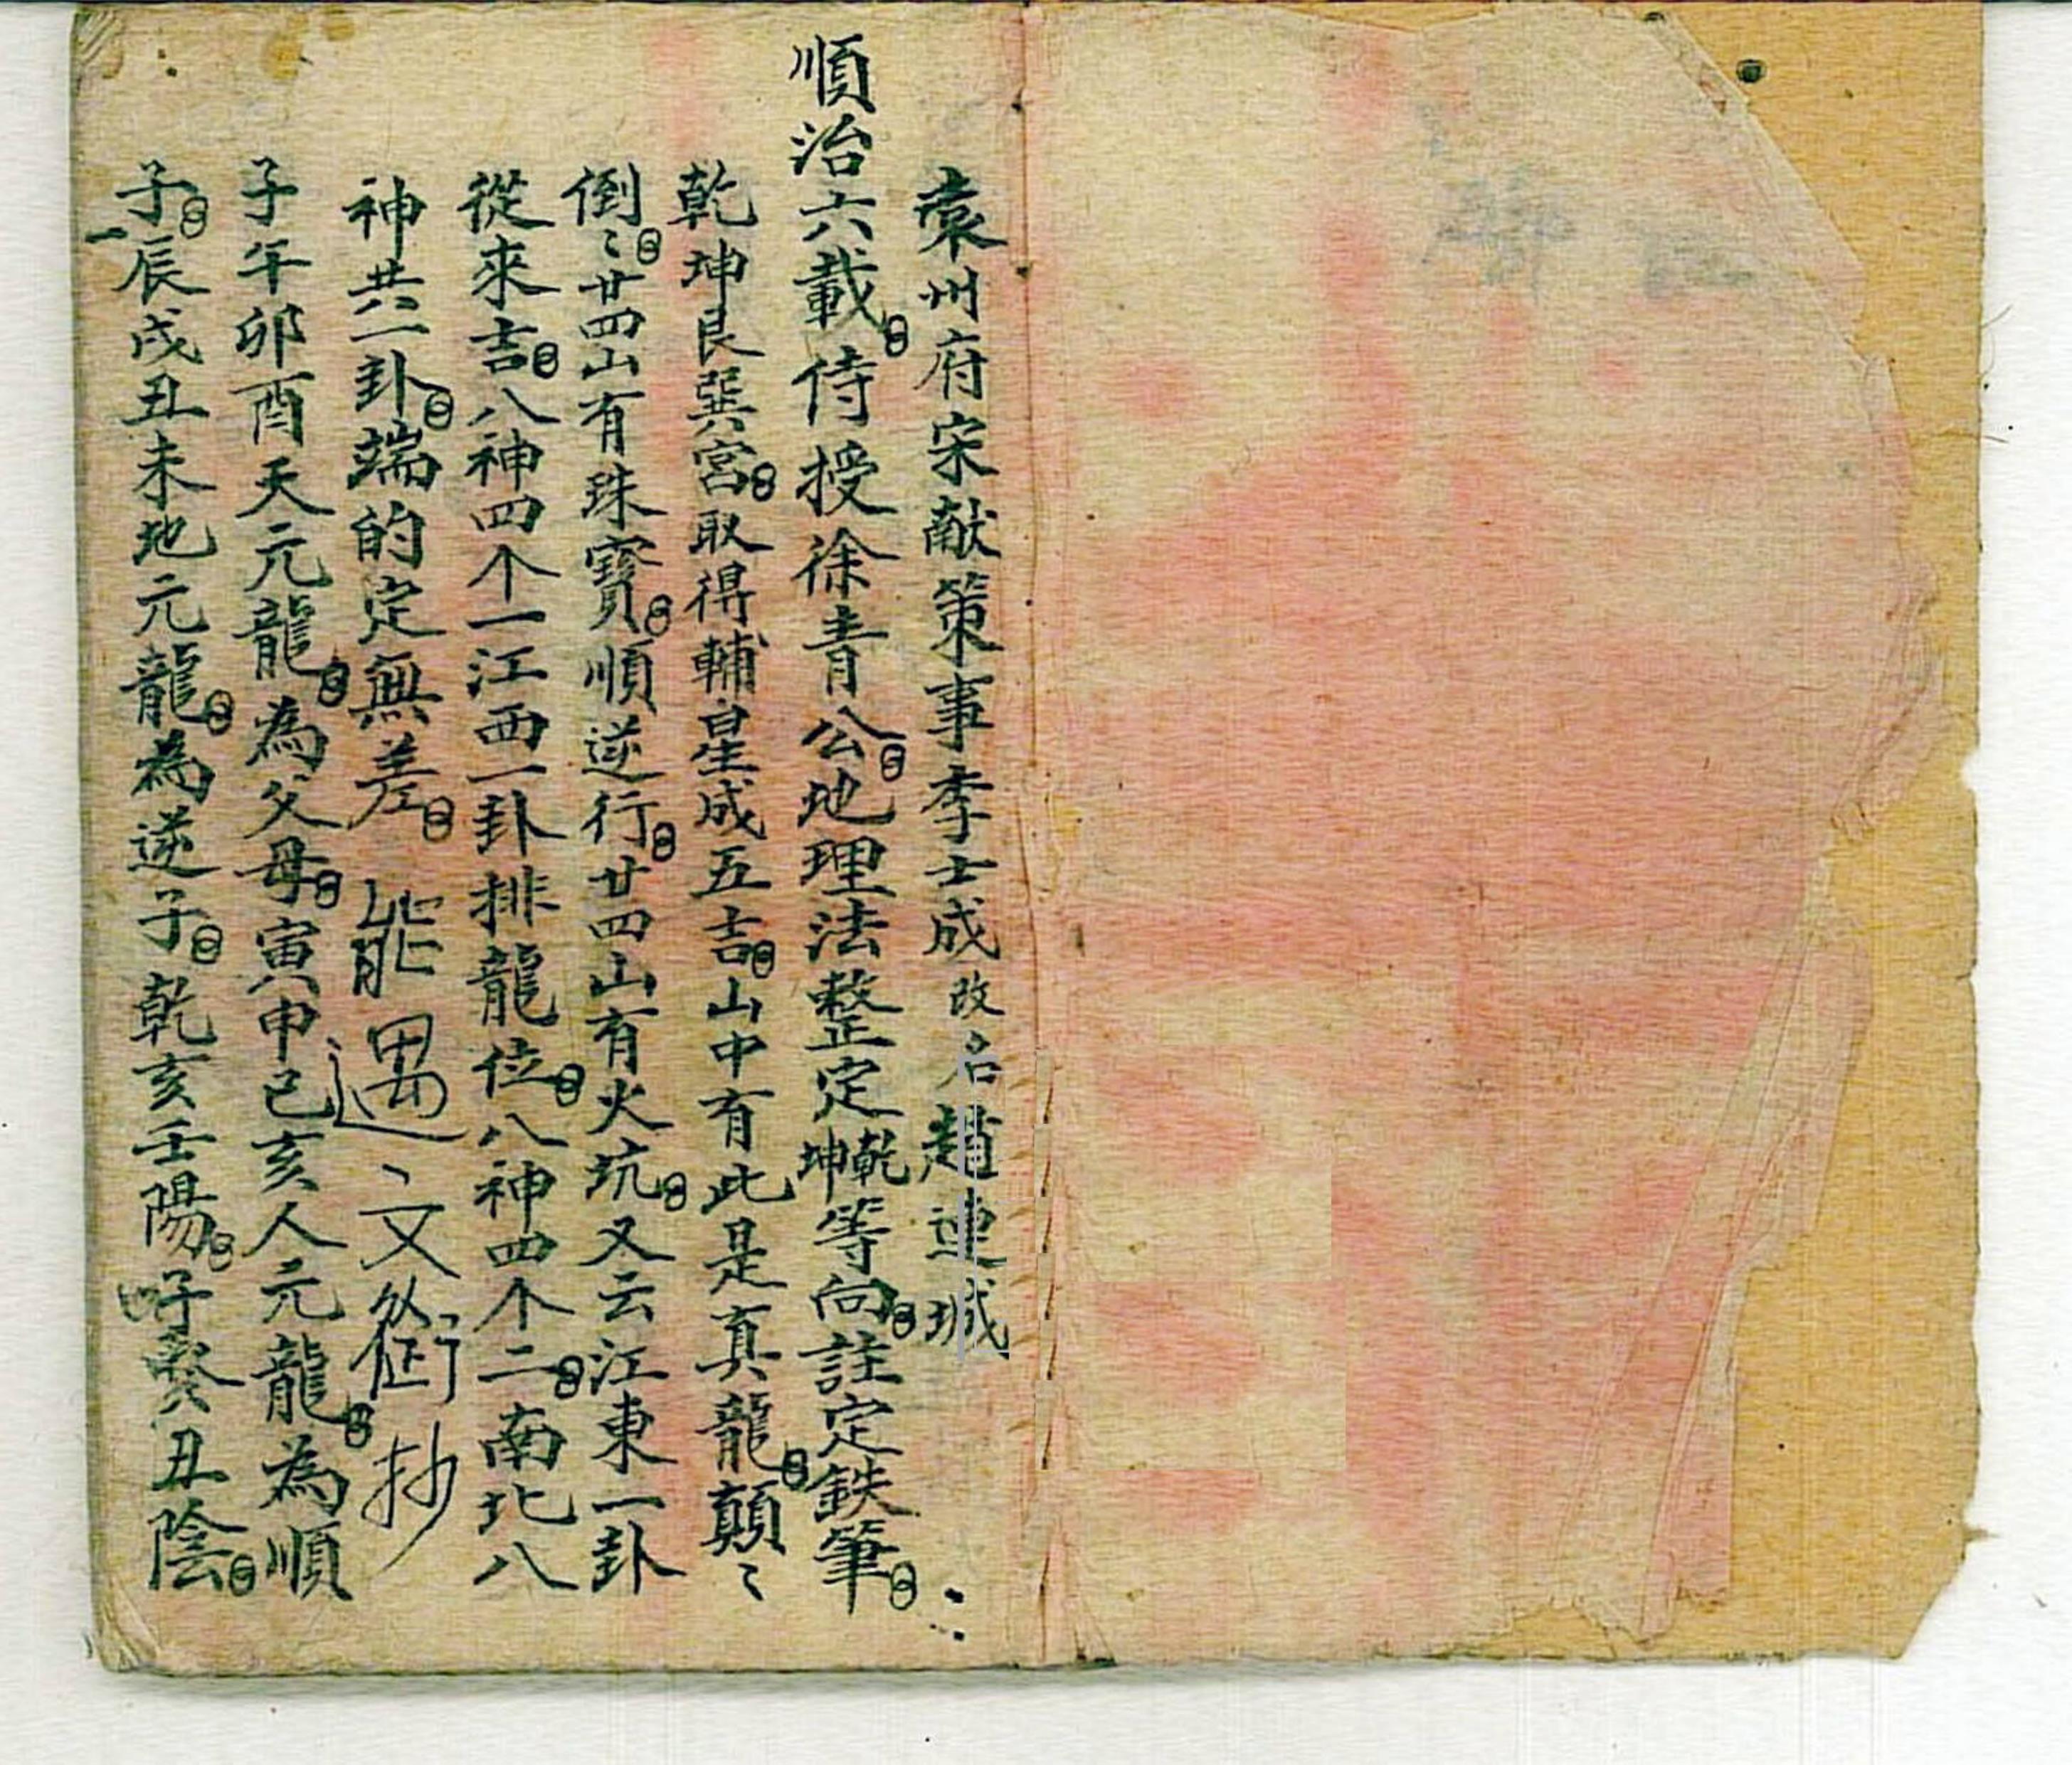 袁州府宋献策事李士成改名趙連城
順治六載侍授徐青公地理法整定乾坤等向註定鉄筆
乾坤艮巽宮取得輔星成五吉山中有此是真龍顛〻
倒〻廿四山有珠寶順逆行廿四山有火坑又云江東一卦
從來吉八神四个一江西一卦排龍位八神四个二南北八
神共一卦端的定無差 文 抄
子午卯酉天元龍為父母寅申巳亥人元龍為順
子辰戌丑未地元龍為逆子乾亥壬陽子癸丑陰